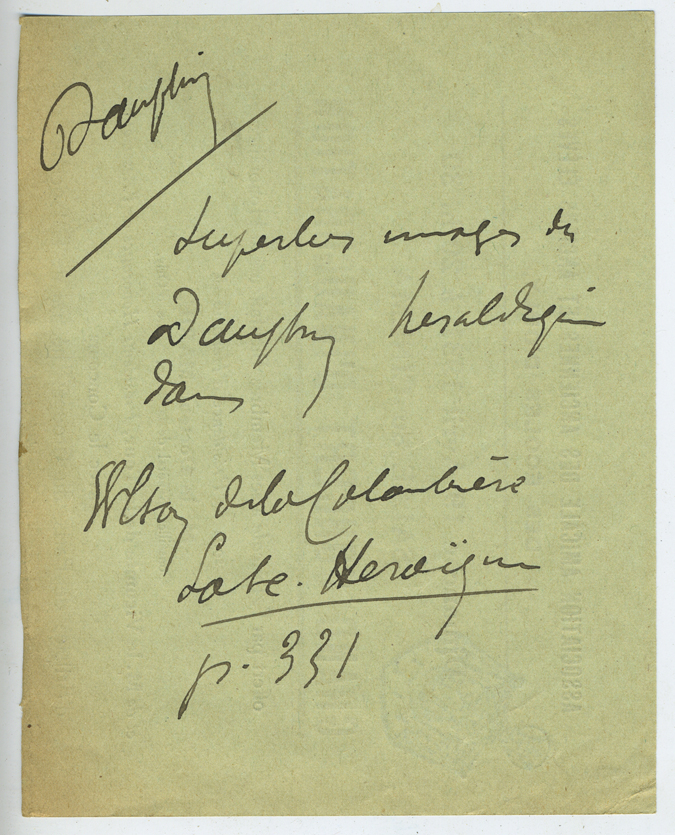 Dauphin
Superbes images du
Dauphin héraldique
dans
Wlson de la Colombière
Sc. Heroïque
p. 331